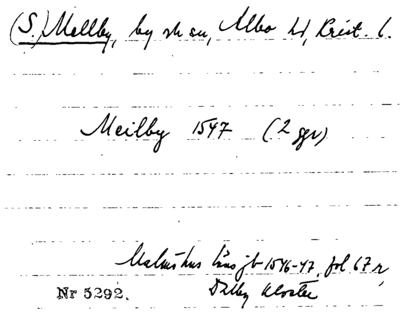 (S.) Mellby, by o sn, Albo hd, Krist. l.
Meilby 1547 (2 ggr)
Malmöhus läns jb 1546-47, fol 67 r,
Nr 5292. Dalby kloster